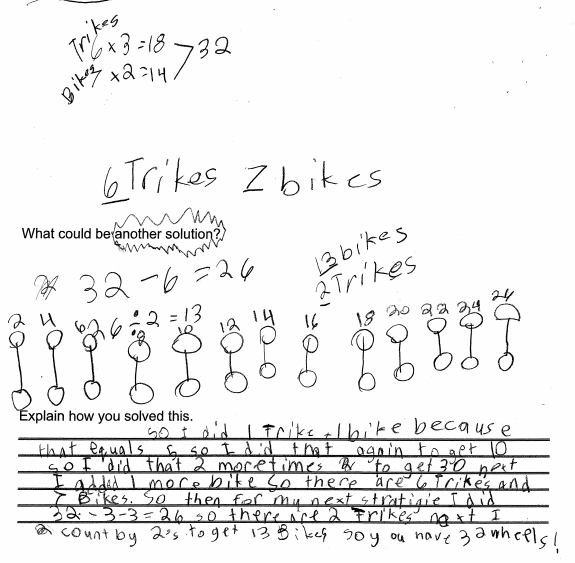 Trikes
6 x 3 = 18 > 32
Bikes 7 x 2 = 14
6 Trikes 7 bikes
What could be another solution?
13 bikes
2 Trikes
32 - 6 = 26
26 ÷ 2 = 13
2 4 6 8 10 12 14 16 18 20 22 24 26
Explain how you solved this.
so I did 1 Trike +1 bike because
that equals 5 so I did that again to get 10
so I did that 2 more times to get 30 next
I added 1 more bike so there are 6 Trikes and
7 Bikes. So then for my next stratigie I did
32-3-3=26 so there are 2 Trikes next I
count by 2's to get 13 Bikes so you have 32 wheels!